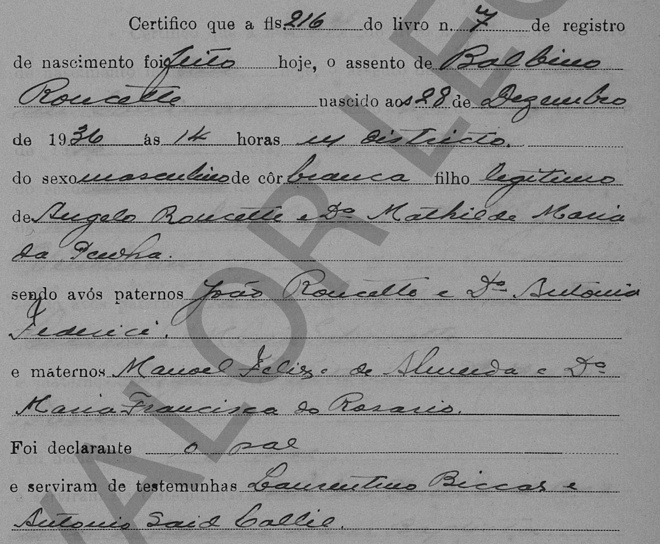 Certifico que a fls. 216 do livro n. 7 de registro
de nascimento foi feito hoje, o assento de Balbino
Roncette nascido aos 28 de Dezembro
de 1936 ás 14 horas districto.
do sexo masculino de côr branca filho legitimo
de Angelo Roncette e Dª Mathilde Maria
da Penha.
sendo avós paternos João Roncetto e Dª Antonia
Federici.
e maternos Manoel Felix de Almeida e Dª
Maria Francisca do Rosario.
Foi declarante o pai
e serviram de testemunhas Laurentino Biccas e
Antonio Said Callil.
VALOR LEG